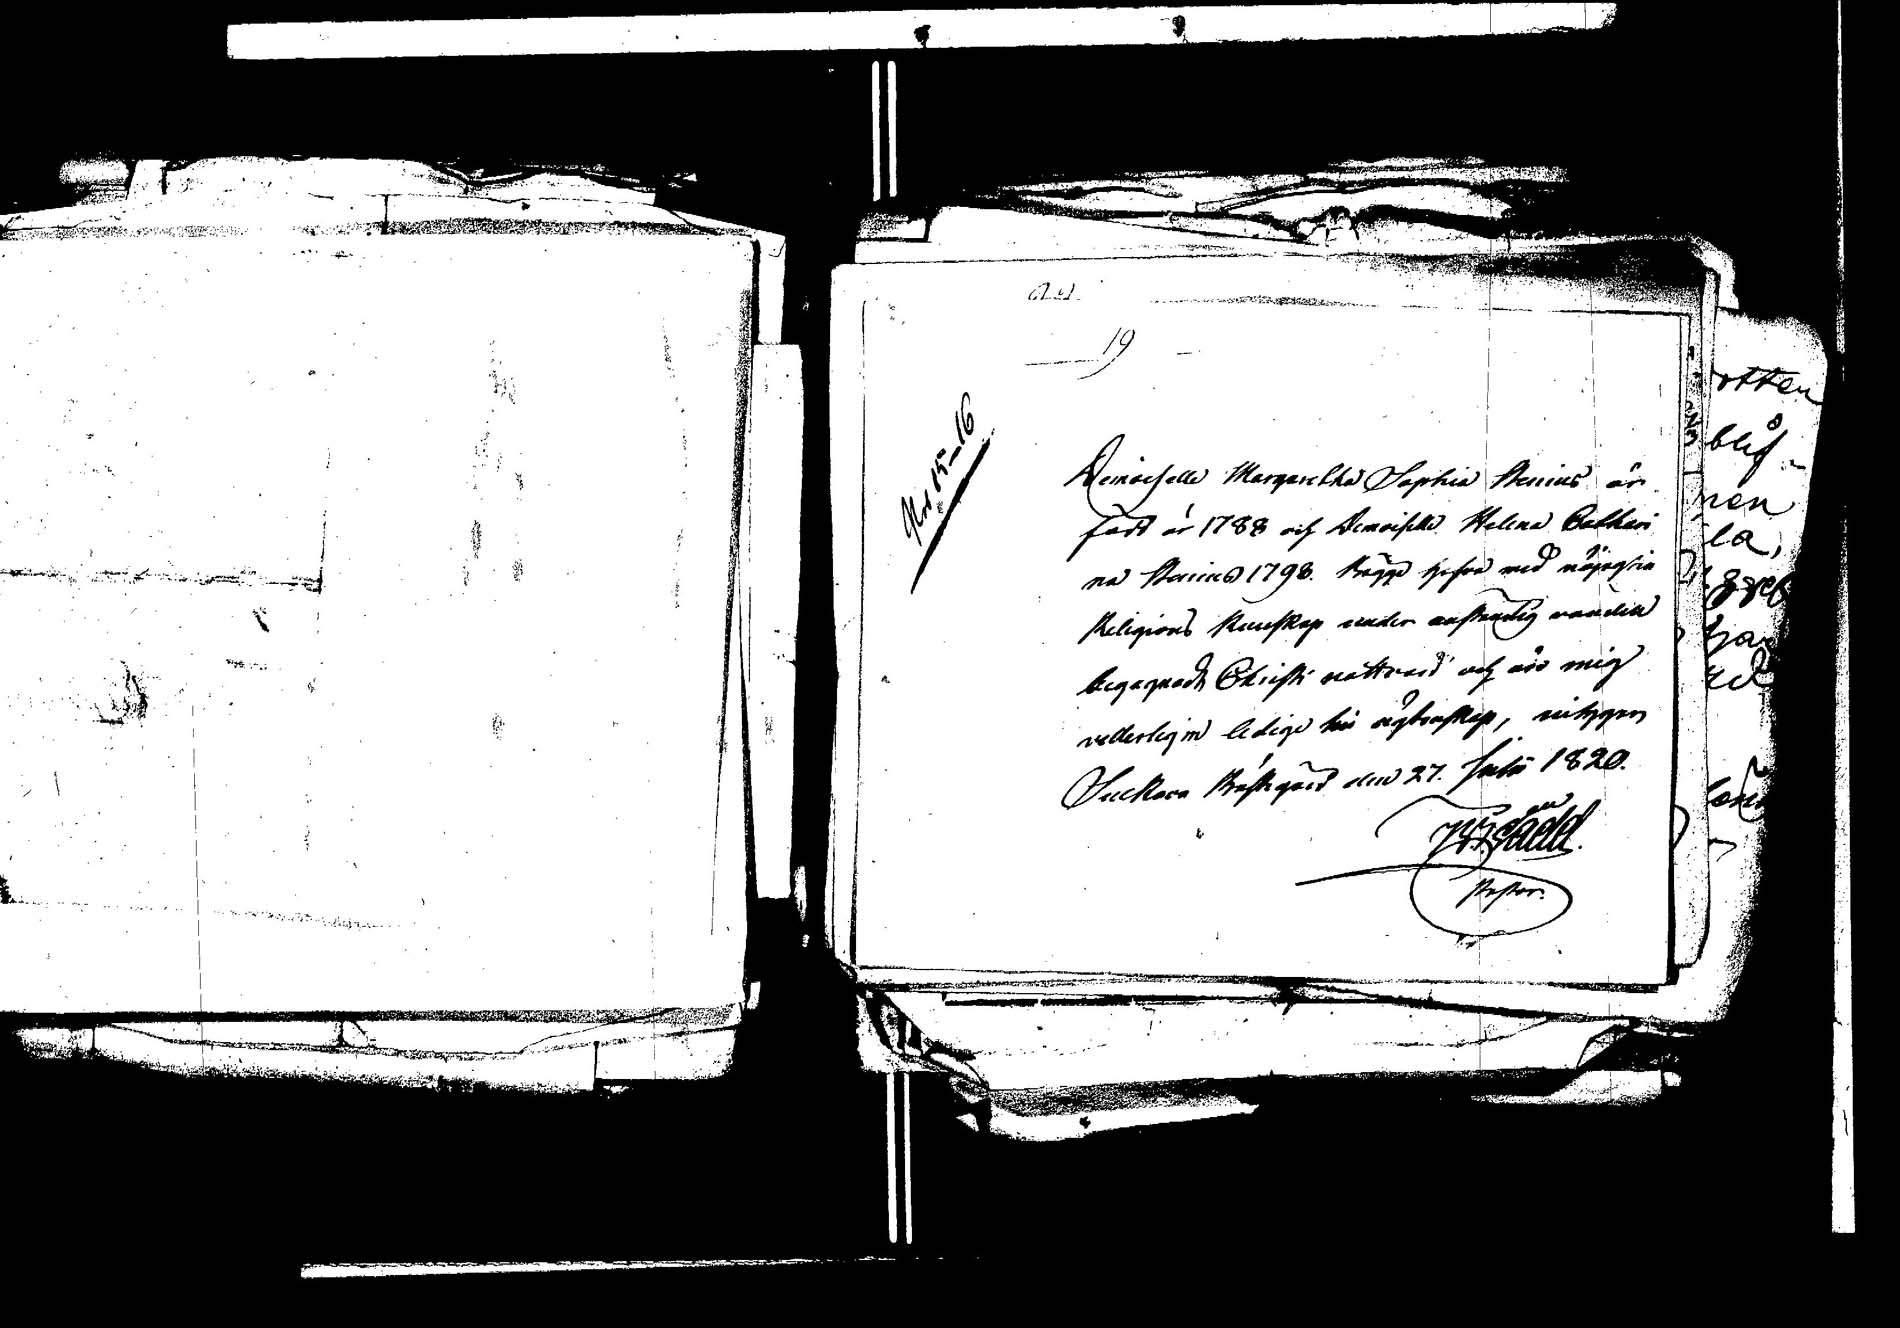 19
Nro 15–16
Demoiselle Margaretha Sophia Stenius är
född år 1788 och Demoiselle Helena Cathari
na Stenius 1798. Bägge hafva med nöjagtig
Religions kunskap under anständig vandel
begagnadt Christi nattvard och äro mig
vetterligen ledige till ägtenskap, intygar
Prästgård den 27. Julii 1820.
Pastor.
otten
blif-
nen
la,